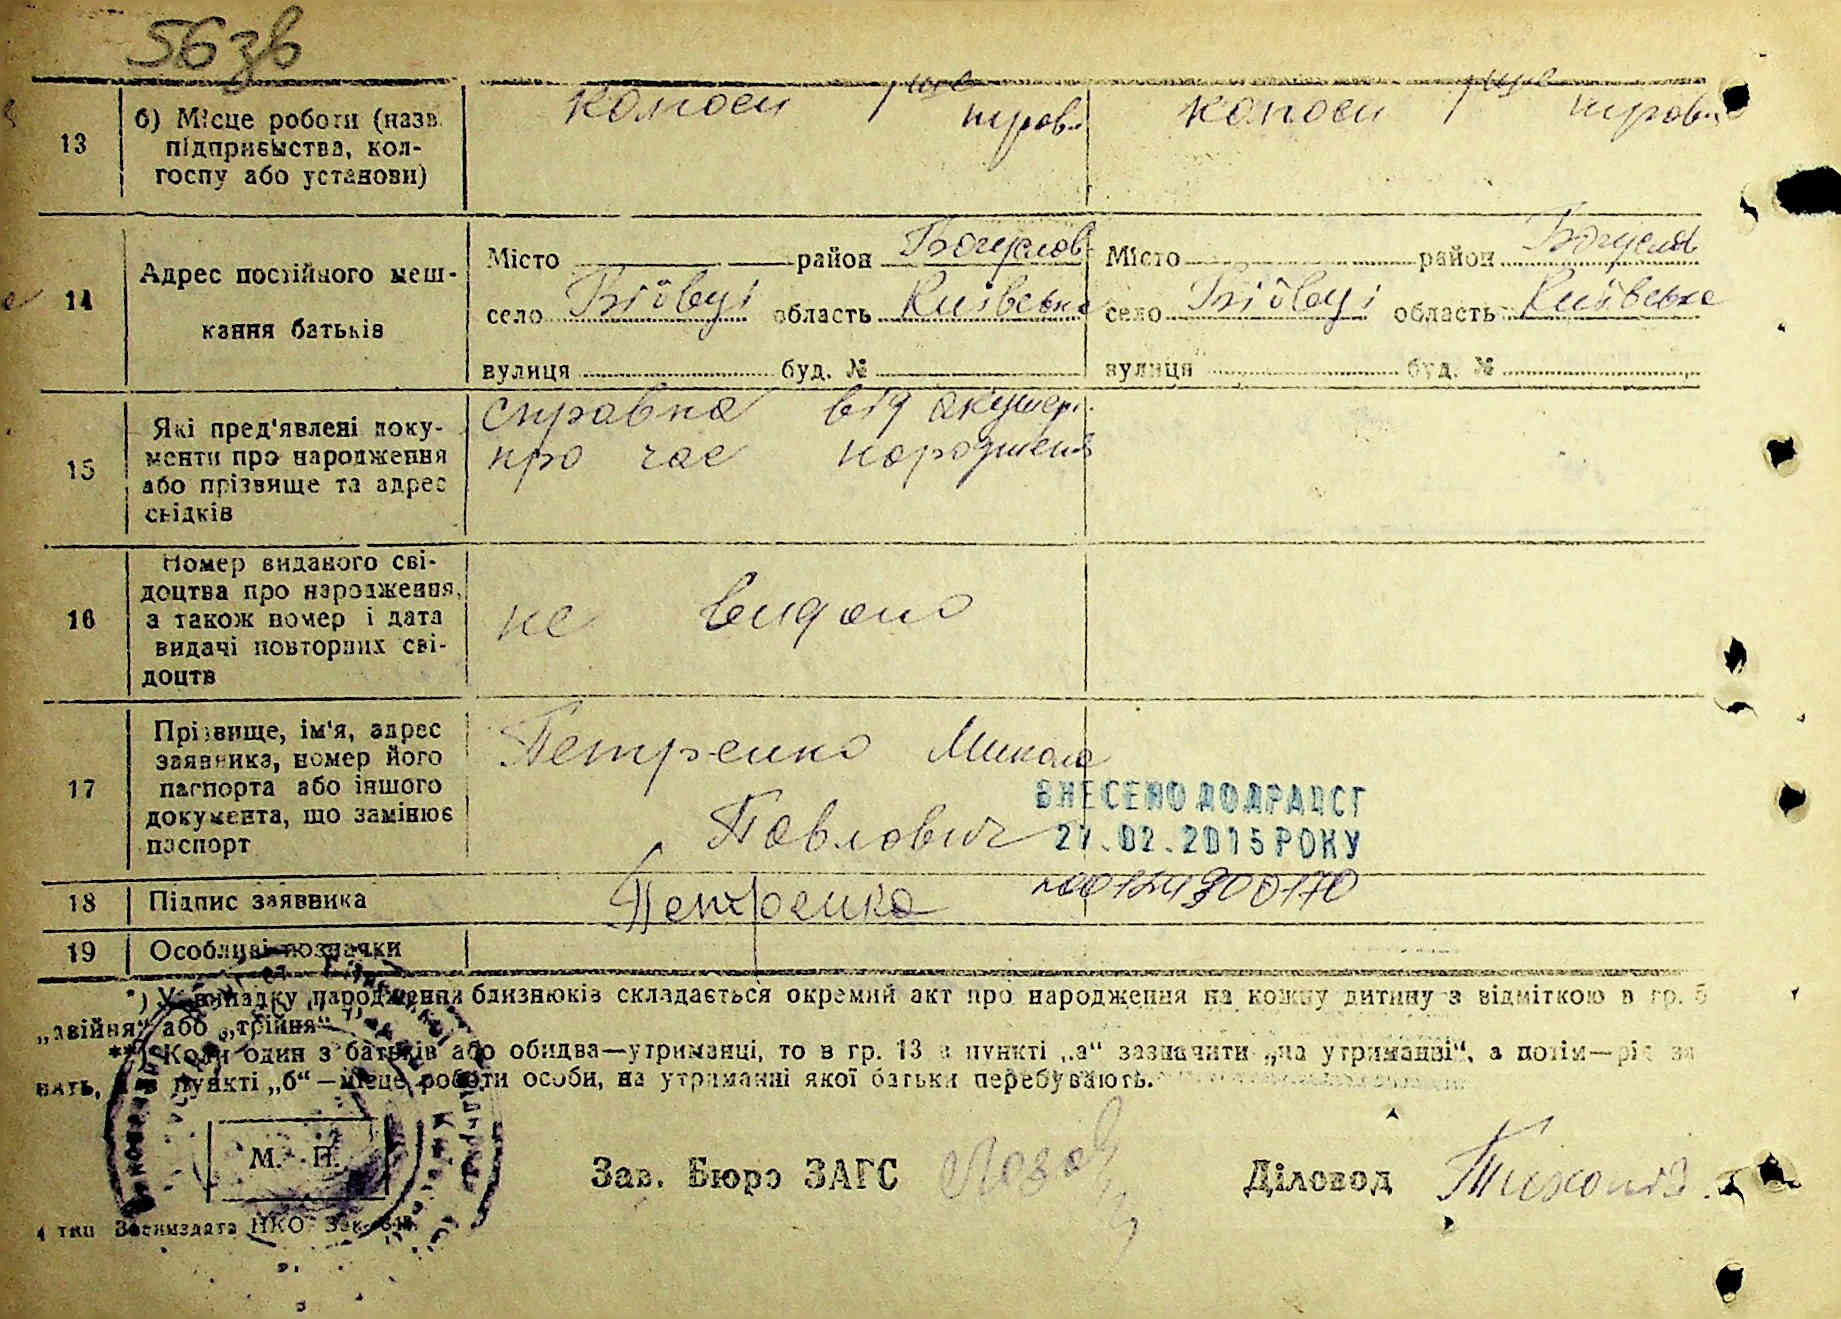 56зв
13
б) Місце роботи (назв.
підприємства, кол-
госпу або установи)
14
Адрес постійного меш-
кання батьків
Місто район Богуслов
село область Київське
вулиця буд. №
Місто район Богуслов
село область Київське
вулиця буд. №
15
Які пред'явлені доку-
менти про народження
або прізвище та адрес
свідків
справка від акушер.
про час народження
16
Номер виданого сві-
доцтва про народження,
а також номер і дата
видачі повторних сві-
доцтв
не видано
17
Прізвище, ім'я, адрес
заявника, номер його
паспорта або іншого
документа, що замінює
паспорт
Петренко Микола
Павлович
ВНЕСЕНО ДО ДРАЦСГ
27.02.2015 РОКУ
18
Підпис заявника
Петренко
00124900170
19
Особливі позначки
*) У випадку народження близнюків складається окремий акт про народження на кожну дитину з відміткою в гр. 5
„двійня“ або „трійня“.
**) Коли один з батьків або обидва—утриманці, то в гр. 13 в пункті „а“ зазначити „на утриманні“, а потім—рід за
нять, а в пункті „б“—місце роботи особи, на утриманні якої батьки перебувають.
М. П.
Зав. Бюро ЗАГС
Діловод
4 тип Воениздата НКО Зак.